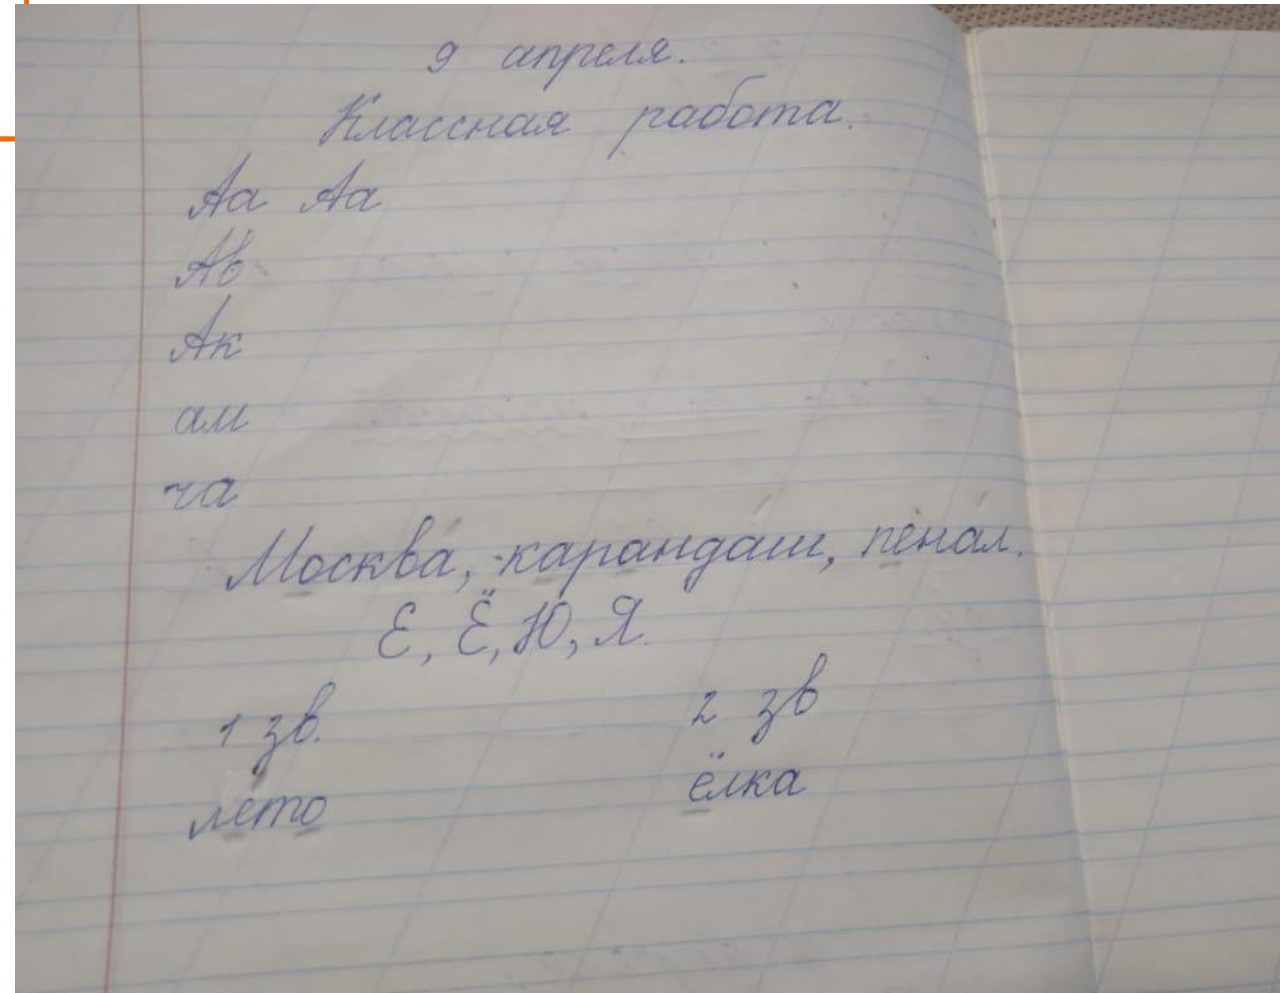 9 апреля.
Классная работа.
Аа Аа
Ав
Ак
ам
ча
Москва́, каранда́ш, пена́л.
Е, Ё, Ю, Я.
1 зв. 2 зв
ле́то ёлка